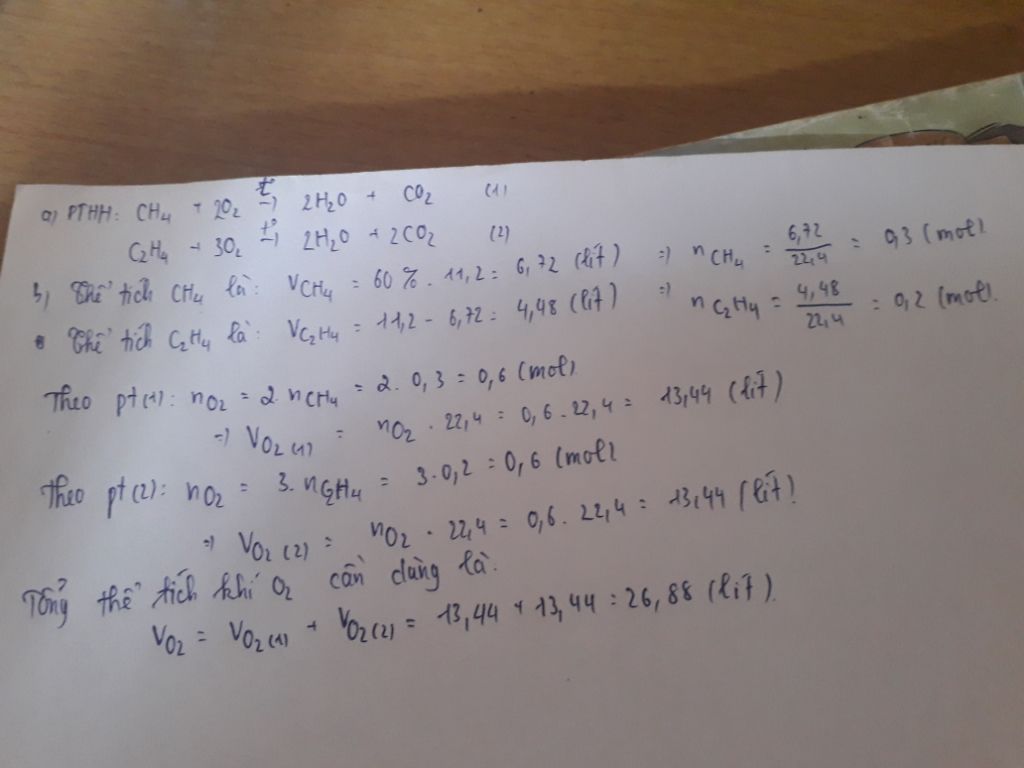 a) PTHH: CH₄ + 2O₂ →^{t°} 2H₂O + CO₂ (1)
C₂H₄ + 3O₂ →^{t°} 2H₂O + 2CO₂ (2)
b) Thể tích CH₄ là: V_{CH₄} = 60%. 11,2 = 6,72 (lít) => n_{CH₄} = 6,72/22,4 = 0,3 (mol)
Thể tích C₂H₄ là: V_{C₂H₄} = 11,2 - 6,72 = 4,48 (lít) => n_{C₂H₄} = 4,48/22,4 = 0,2 (mol).
Theo pt(1): n_{O₂} = 2. n_{CH₄} = 2. 0,3 = 0,6 (mol)
=> V_{O₂ (1)} = n_{O₂} . 22,4 = 0,6. 22,4 = 13,44 (lít)
Theo pt(2): n_{O₂} = 3. n_{C₂H₄} = 3.0,2 = 0,6 (mol)
=> V_{O₂ (2)} = n_{O₂} . 22,4 = 0,6. 22,4 = 13,44 (lít).
Tổng thể tích khí O₂ cần dùng là:
V_{O₂} = V_{O₂ (1)} + V_{O₂ (2)} = 13,44 + 13,44 = 26,88 (lít).